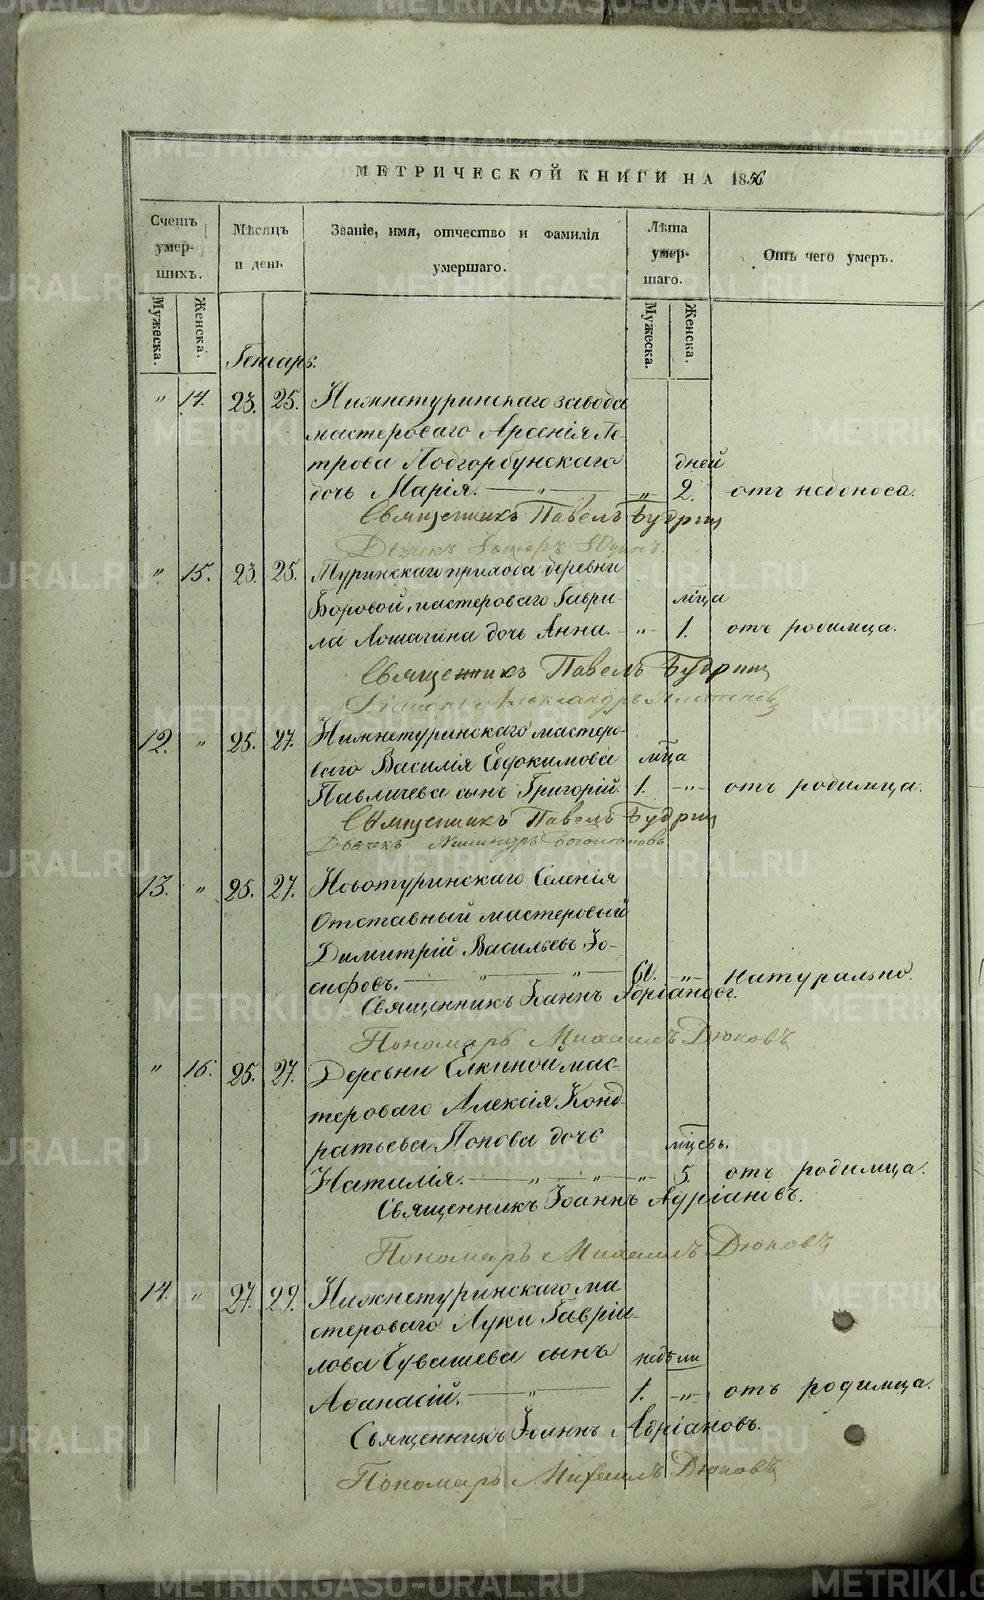 МЕТРИЧЕСКОЙ КНИГИ НА 1856
Счетъ умер- шихъ.
Мѣсяцъ и день
Званіе, имя, отчество и фамилія умершаго.
Лѣта умер- шаго.
Отъ чего умеръ.
Мужеска. Женска.
Мужеска. Женска.
Генварь.
" 14. 23. 25. Нижнетуринскаго завода
мастероваго Арсенія Пе-
трова Подгорбунскаго дней
дочь Марія. " " 2. отъ недоноса.
Священникъ Павелъ Будрин
Дьячекъ
" 15. 23. 25. Туринскаго прихода деревни
Боровой, мастероваго Гаври- мѣца
ла Лошагина дочь Анна. " 1. отъ родимца.
Священникъ Павелъ Будрин
Александръ
12. " 25. 27. Нижнетуринскаго мастеро-
ваго Василія Евдокимова мѣца
Павличева сынъ Григорій. 1. " отъ родимца.
Священникъ Павелъ Будрин
Дьячекъ
13. " 25. 27. Новотуринскаго Селенія
Отставный мастеровый
Димитрій Васильевъ Іо-
сифовъ. " " 61. " Натурально.
Священникъ Іоаннъ Адріановъ.
Пономарь Михаилъ Дюковъ
" 16. 25. 27. Деревни Елкиной мас-
тероваго Алексія Конд-
ратьева Попова дочь мѣцевъ.
Наталія. " " " 5. отъ родимца.
Священникъ Іоаннъ Адріановъ.
Пономарь Михаилъ Дюковъ
14. " 27. 29. Нижнетуринскаго ма-
стероваго Луки Гавріи-
лова Чувашева сынъ недѣли
Аѳанасій. " 1. " отъ родимца.
Священникъ Іоаннъ Адріановъ.
Пономарь Михаилъ Дюковъ
METRIKI.GASO-URAL.RU